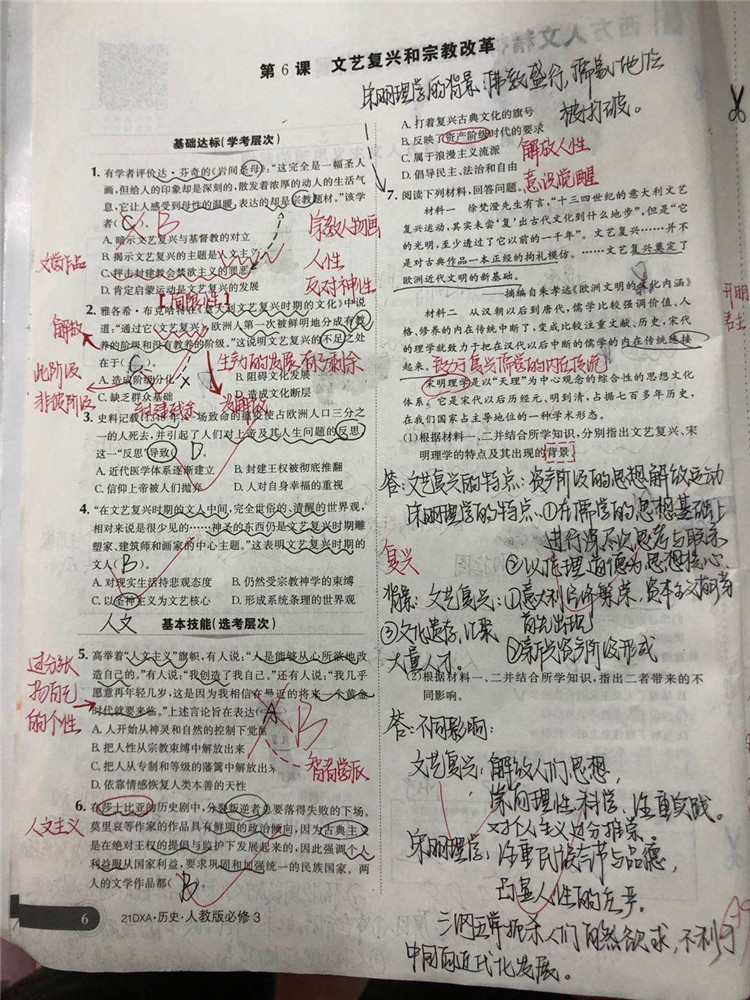 第6课 文艺复兴和宗教改革
宋明理学的背景:佛教盛行,儒学地位
被打破。
基础达标(学考层次)
1. 有学者评价达·芬奇的《岩间圣母》:“这完全是一幅圣人
画,但给人的印象却是深刻的,散发着浓厚的动人的生活气
息,它让人感受到母性的温暖,表达的却是宗教题材。”该学
者( C )
B
A. 暗示文艺复兴与基督教的对立
B. 揭示文艺复兴的主题是人文主义
C. 抨击封建教会禁欲主义的罪恶
D. 肯定启蒙运动是文艺复兴的发展
文学作品
宗教人物画
人性
反对神性
【局限性】
2. 雅各希·布克哈特在《意大利文艺复兴时期的文化》中说
道:“通过它(文艺复兴),欧洲人第一次被鲜明地分成有教
养的阶级和没有教养的阶级。”这说明文艺复兴的不足之处
在于( C )
A. 造成阶级分化 B. 阻碍文化发展
C. 缺乏群众基础 D. 造成文化断层
解放
此阶段
非彼阶段
生动的发展
封建残余
3. 史料记载,1348年一场致命的瘟疫使占欧洲人口三分之
一的人死去,并引起了人们对上帝及其人生问题的反思
这一“反思”导致( D )
A. 近代医学体系逐渐建立 B. 封建王权被彻底推翻
C. 信仰上帝被人们抛弃 D. 人对自身幸福的重视
4. “在文艺复兴时期的文人中间,完全世俗的、清醒的世界观,
相对来说是很少见的……神圣的东西仍是文艺复兴时期雕
塑家、建筑师和画家的中心主题。”这表明文艺复兴时期的
文人( B )
A. 对现实生活持悲观态度 B. 仍然受宗教神学的束缚
C. 以全神主义为文艺核心 D. 形成系统条理的世界观
人文
基本技能(选考层次)
5. 高举着“人文主义”旗帜,有人说:“人是能够从心所欲地改
造自己的。”有人说:“我创造了我自己。”还有人说:“我几乎
愿意再年轻几岁,这是因为我相信在最近的将来一个黄金
时代就要来临。”上述言论旨在表达( A )
B
A. 人开始从神灵和自然的控制下觉醒
B. 把人性从宗教束缚中解放出来
C. 把人从专制和等级的藩篱中解放出来
D. 依靠情感恢复人类本善的天性
过分张
扬自己
的个性
智者学派
6. 在莎士比亚的历史剧中,分裂叛逆者总要落得失败的下场。
莫里哀等作家的作品具有鲜明的政治倾向,因为古典主义
是在绝对王权的提倡与监护下发展起来的,因此强调个人
利益服从国家利益,要求巩固和加强统一的民族国家。两
人的文学作品都( B )
人文主义
6 21DXA·历史·人教版必修3
A. 打着复兴古典文化的旗号
B. 反映了资产阶级时代的要求
C. 属于浪漫主义流派
D. 倡导民主、法治和自由
解放人性
意识觉醒
7. 阅读下列材料,回答问题。
材料一 徐梵澄先生有言,“十三四世纪的意大利文艺
复兴运动,其实未尝‘复’出古代文化到什么地步”,但是“它
的光明,至少透过了它以前的一千年”。文艺复兴……并不
是对古典作品一本正经的拘礼模仿。……文艺复兴奠定了
欧洲近代文明的新基础。
——摘编自朱孝远《欧洲文明的文化内涵》
材料二 从汉朝以后到唐代,儒学比较强调价值、人
格、修养的内在传统中断了,变成比较注重文献、历史,宋代
的理学就致力于把在汉代以后中断的儒学的内在传统连接
起来。
致力复兴儒学的内在传统
宋明理学是以“天理”为中心观念的综合性的思想文化
体系。它是宋代以后历经元、明到清,占据七百多年历史,
在我们国家占主导地位的一种学术形态。
(1)根据材料一、二并结合所学知识,分别指出文艺复兴、宋
明理学的特点及其出现的背景。
答:文艺复兴的特点:资产阶级的思想解放运动
宋明理学的特点:①在儒学的思想基础上
进行深层次思考与联系
②以伦理道德为思想核心
复兴
背景:文艺复兴:①意大利经济繁荣,资本主义萌芽
首先出现
③文化遗存,汇聚
大量人才。
②新兴资产阶级形成
(2)根据材料一、二并结合所学知识,指出二者带来的不
同影响。
答:不同影响:
文艺复兴:解放人们思想,
崇尚理性、科学、注重实践。
对个人主义过分推崇。
宋明理学:注重民族气节与品德,
凸显人性的庄严。
三纲五常扼杀人们自然欲求,不利于
中国向近代化发展。